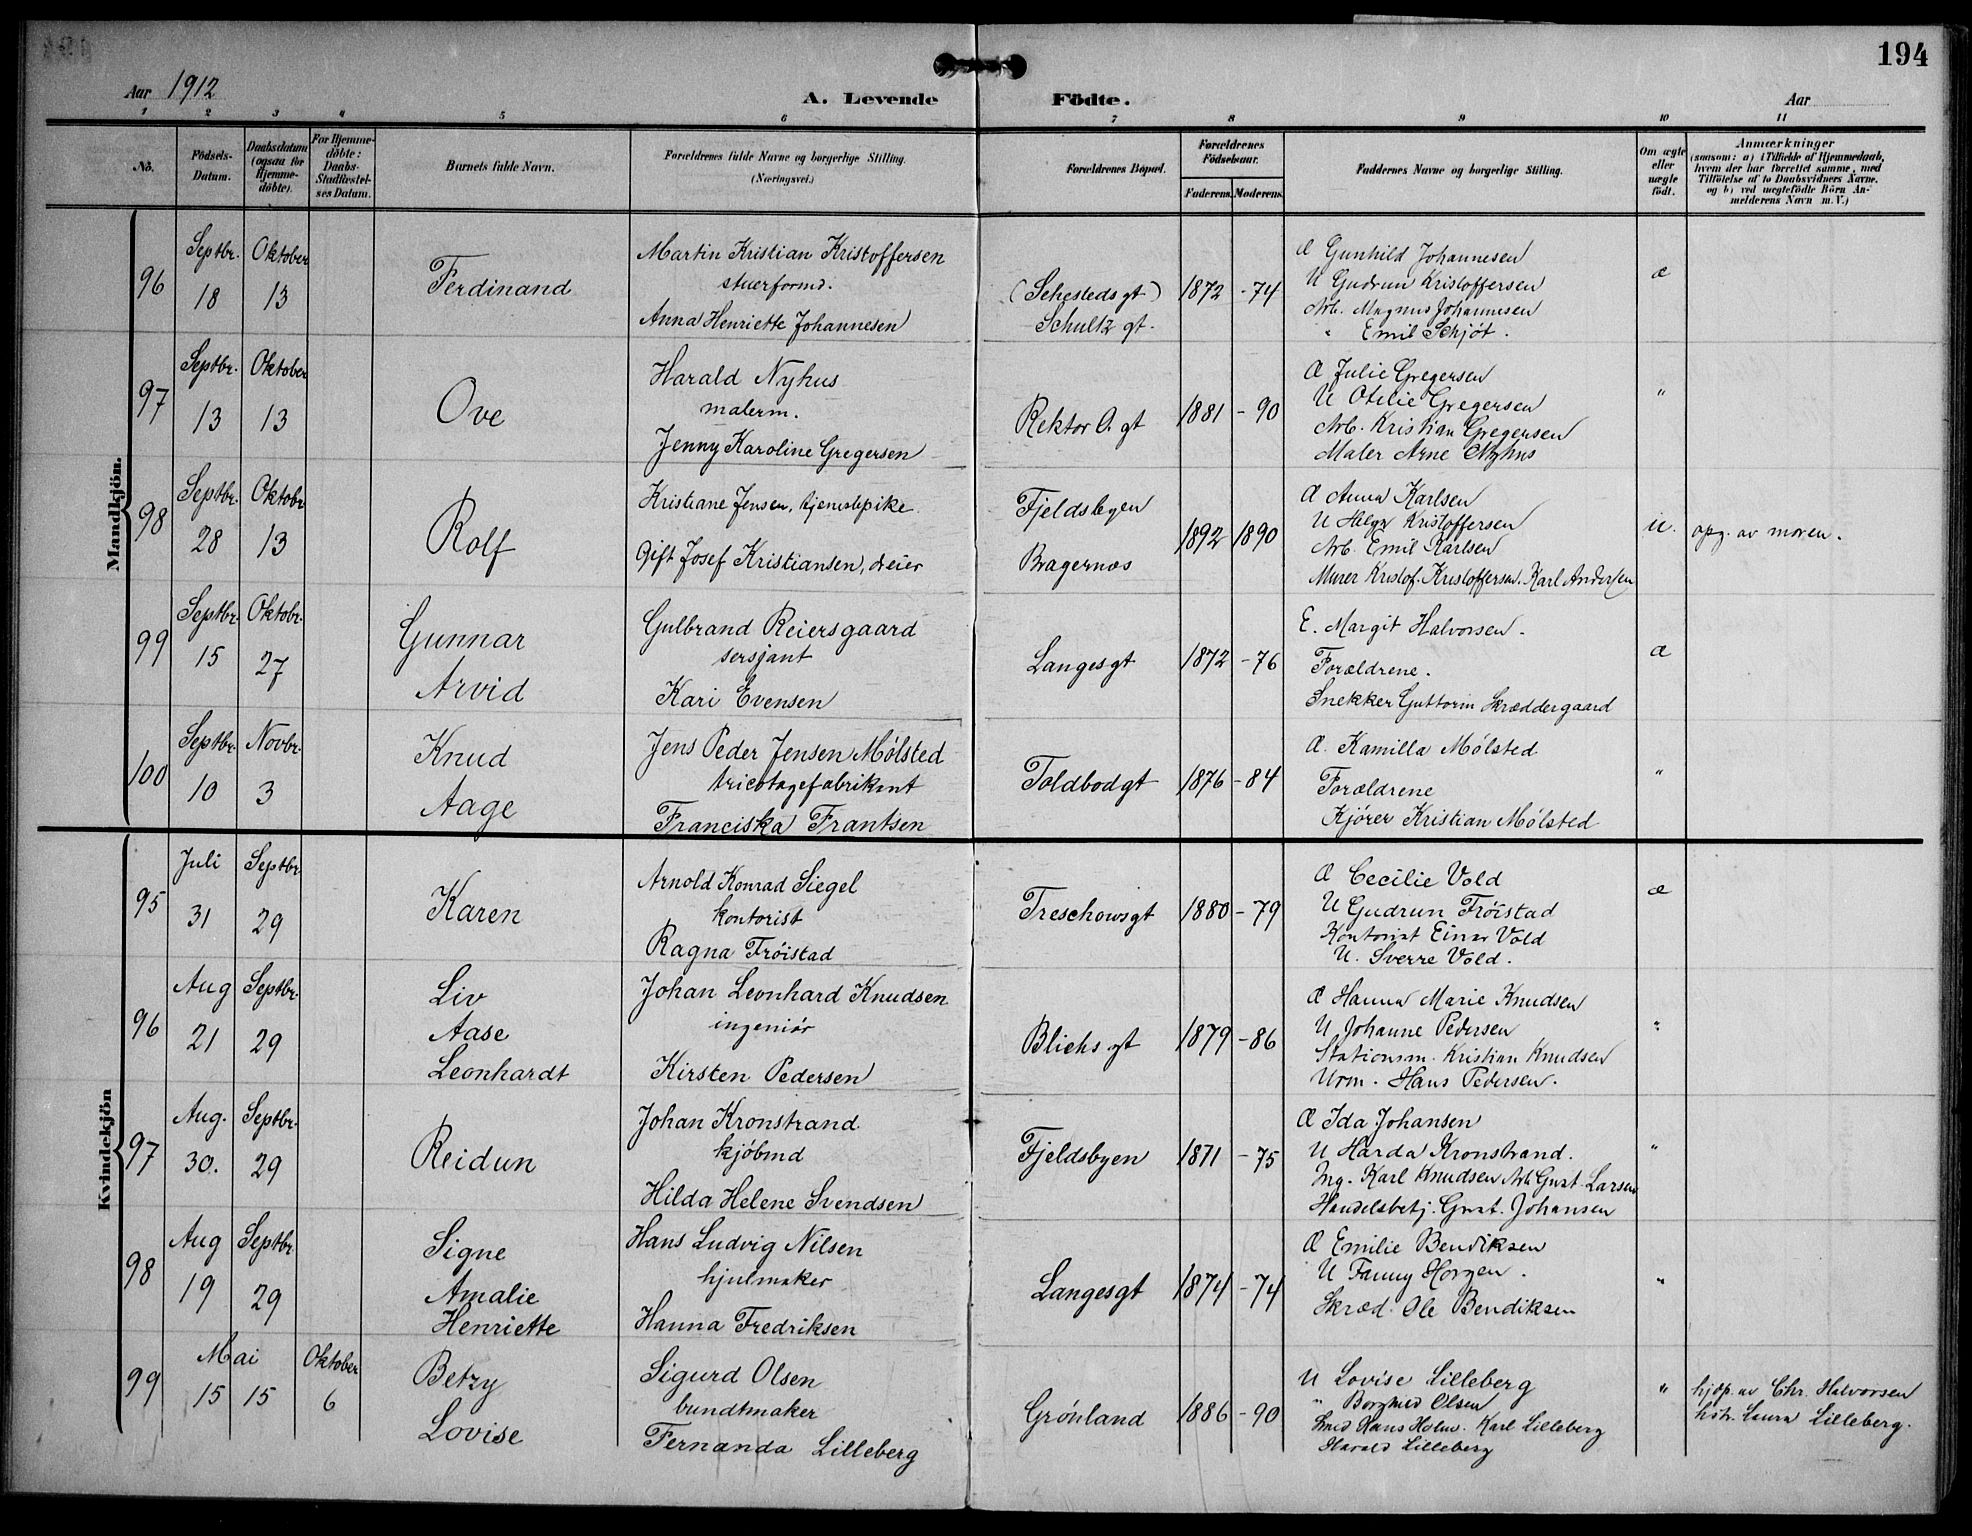 194
Aar 1912
A. Levende Födte.
Aar
1 2 3 4 5 6 7 8 9 10 11
No.
Födsels-Datum.
Daabsdatum (ogsaa for Hjemme-döbte).
For Hjemme-döbte: Daabs-Stadfæstel-ses Datum.
Barnets fulde Navn.
Forældrenes fulde Navne og borgerlige Stilling.
(Næringsvei.)
Forældrenes Bopæl.
Forældrenes Födselsaar.
Faderens. Moderens.
Faddernes Navne og borgerlige Stilling.
Om ægte eller uægte födt.
Anmærkninger
(saasom: a) i Tilfælde af Hjemmedaab, hvem der har forrettet samme, med Tilföielse af to Daabsvidners Navne, og b) ved uægtefödte Börn An-melderens Navn m. V.)
Mandkjön.
96
Septbr. 18
Oktober 13
Ferdinand
Martin Kristian Kristoffersen
stuerformd.
Anna Henriette Johannesen
(Sehesteds gt)
Schultz gt.
1872 - 74
Æ Gunhild Johannesen
U Gudrun Kristoffersen
Arb. Magnus Johannesen
" Emil Schjøt.
æ
97
Septbr. 13
Oktober 13
Ove
Harald Nyhus
malerm.
Jenny Karoline Gregersen
Rektor O. gt
1881 - 90
Æ Julie Gregersen
U Otilie Gregersen
Arb. Kristian Gregersen
Maler Arne Nyhus
"
98
Septbr. 28
Oktobr 13
Rolf
Kristiane Jensen, tjenestepike
Gift Josef Kristiansen, dreier
Fjeldsbyen
Bragernæs
1892 1890
Æ Anna Karlsen
U Helga Kristoffersen
Arb. Emil Karlsen
Murer Kristof. Kristoffersen. Karl Andersen
u.
opg. av moren.
99
Septbr. 15
Oktobr. 27
Gunnar
Arvid
Gulbrand Reiersgaard
sersjant
Kari Evensen
Langesgt
1872 - 76
E. Margit Halvorsen.
Forældrene.
Snekker Guttorm Skræddergaard
æ
100
Septbr. 10
Novbr. 3
Knud
Aage
Jens Peder Jensen Mølsted
tricotagefabrikant
Franciska Frantsen
Toldbodgt
1876 - 84
Æ. Kamilla Mølsted
Forældrene
Kjører Kristian Mølsted
"
Kvindekjön
95
Juli 31
Septbr 29
Karen
Arnold Konrad Siegel
kontorist
Ragna Frøistad
Treschowsgt
1880 - 79
Æ Cecilie Vold
U Gudrun Frøistad
Kontorist Einar Vold
U. Sverre Vold.
æ
96
Aug 21
Septbr. 29
Liv
Aase
Leonhardt
Johan Leonhard Knudsen
ingeniør
Kirsten Pedersen
Blichs gt
1879 - 86
Æ Hanna Marie Knudsen
U Johanne Pedersen
Stationsm. Kristian Knudsen
Urm. Hans Pedersen.
"
97
Aug. 30.
Septbr. 29
Reidun
Johan Kronstrand
kjøbmd
Hilda Helene Svendsen
Fjeldsbyen
1871 - 75
Æ Ida Johansen
U Harda Kronstrand.
Ing. Karl Knudsen Arb Gust. Larsen
Handelsbetj. Gust. Johansen
"
98
Aug 19
Septbr. 29
Signe
Amalie
Henriette
Hans Ludvig Nilsen
hjulmaker
Hanna Fredriksen
Langesgt
1874 - 74
Æ Emilie Bendiksen
U Fanny Horgen.
Skræd. Ole Bendiksen
"
99
Mai 15 15
Oktober 6
Betzy
Lovise
Sigurd Olsen
bundtmaker
Fernanda Lilleberg
Grønland
1886 - 90
U Lovise Lilleberg
" Borghild Olsen
Smed Hans Holm. Karl Lilleberg
Harald Lilleberg
"
hjdp. av Chr. Halvorsen
Laura Lilleberg.